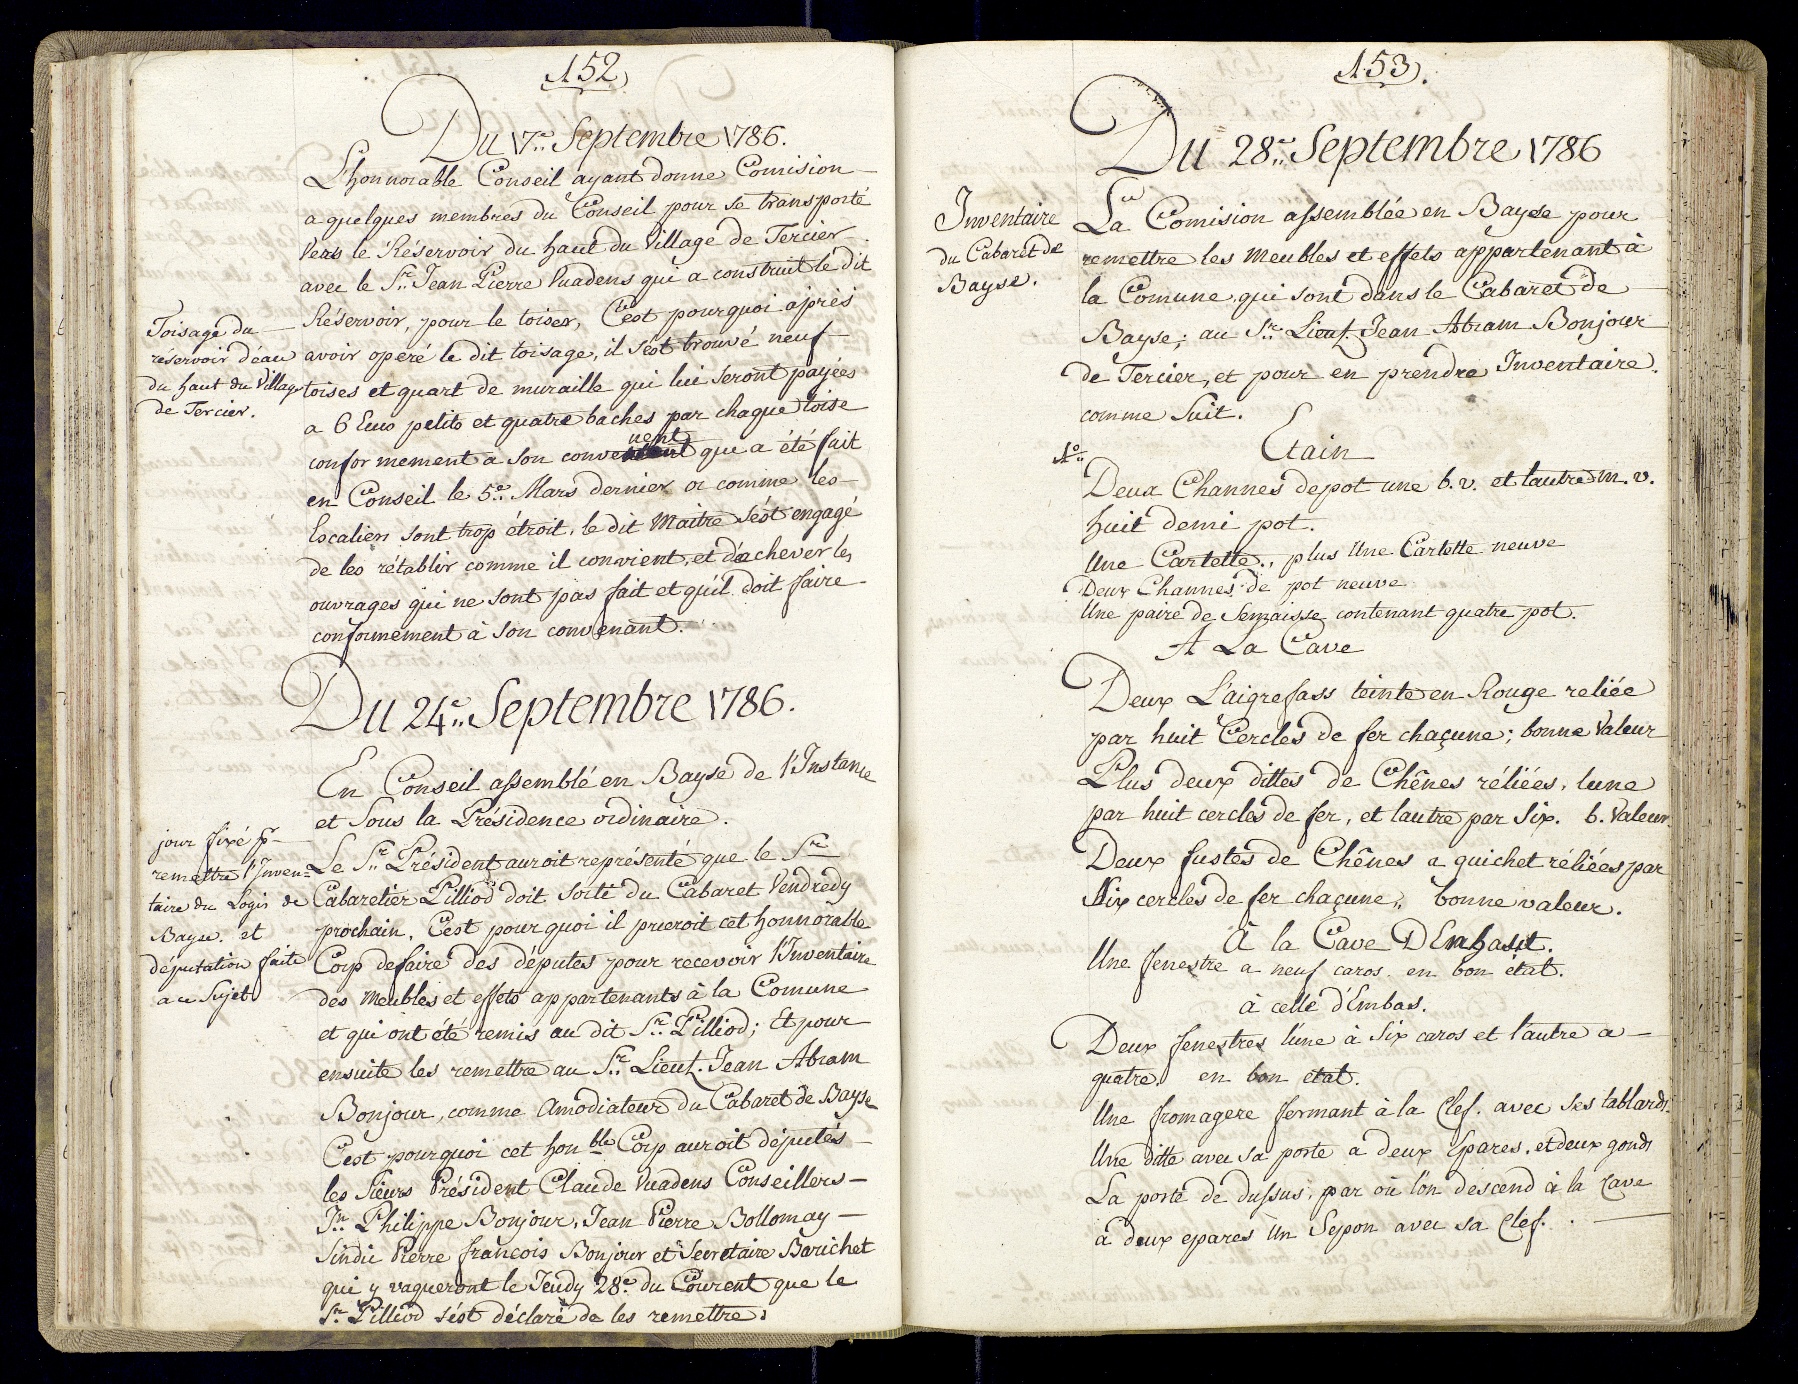 152
Du 17.e Septembre 1786.
L'honnorable Conseil ayant donne Comision
a quelques membres du Conseil pour se transporté
Vers le Réservoir du haut du Village de Tercier
avec le Sr. Jean Pierre Vuadens qui a construit le dit
Réservoir, pour le toiser, C'est pourquoi après
avoir opéré le dit toisage, il s'est trouvé neuf
toises et quart de muraille qui lui seront payées
a 6 Ecus petits et quatre baches par chaque toise
conformement a son convenent que a été fait
nent
en Conseil le 5.e Mars dernier or comme les
Escaliers sont trop étroit, le dit Maitre s'est engagé
de les rétablir comme il convient, et d'achever les
ouvrages qui ne sont pas fait et qu'il doit faire
conformement à son convenant.
Toisage du
réservoir d'eau
du haut du Village
de Tercier.
Du 24.e Septembre 1786.
En Conseil assemblé en Bayse de l'Instance
et Sous la Présidence ordinaire.
Le Sr. Président auroit représenté que le Sr.
Cabaretier Pilliod doit sorti du Cabaret Vendredy
prochain, C'est pourquoi il prieroit cet honnorable
Corp de faire des députes pour recevoir l'Inventaire
des Meubles et effets appartenants à la Comune
et qui ont été remis au dit Sr. Pilliod; Et pour
ensuite les remettre au Sr. Lieut. Jean Abram
Bonjour, comme Amodiateur du Cabaret de Bayse
C'est pourquoi cet honble Corp auroit députés
les Sieurs Président Claude Vuadens Conseillers
Jn. Philippe Bonjour, Jean Pierre Bollomay
Sindic Pierre françois Bonjour et Secretaire Barichet
qui y vaqueront le Jeudy 28.e du Courent que le
Sr. Pilliod s'est déclaré de les remettre.
jour fixé pr
remettre l'Inven=
taire du Logis de
Bayse. et
députation faite
a ce Sujet
153.
Du 28.e Septembre 1786
Inventaire
du Cabaret de
Bayse.
La Comision assemblée en Bayse pour
remettre les Meubles et effets appartenant à
la Comune qui sont dans le Cabaret de
Bayse; au Sr. Lieut. Jean Abram Bonjour
de Tercier, et pour en prendre Inventaire.
comme Suit.
Etain
1o.
Deux Channes de pot une b. v. et l'autre m. v.
huit demi pot.
Une Cartette., plus Une Cartette neuve
Deux Channes de pot neuve
Une paire de Semaisse contenant quatre pot.
A La Cave
Deux L'aigrefass teinte en Rouge reliée
par huit Cercles de fer chaçune; bonne Valeur
Plus deux dittes de Chênes réliées, lune
par huit cercles de fer, et lautre par Six. b. Valeur.
Deux fustes de Chênes a guichet réliées par
Six cercles de fer chaçune, bonne valeur.
à la Cave DEnhaut.
Une fenestre a neuf caros en bon état.
à celle d'Embas.
Deux fenestres l'une à Six caros et l'autre a
quatre, en bon etat.
Une fromagere fermant à la Clef. avec ses tablards.
Une ditte avec sa porte a deux Epares, et deux gonds
La porte de dussus, par où l'on descend à la Cave
à deux epares Un Sepon avec sa Clef.